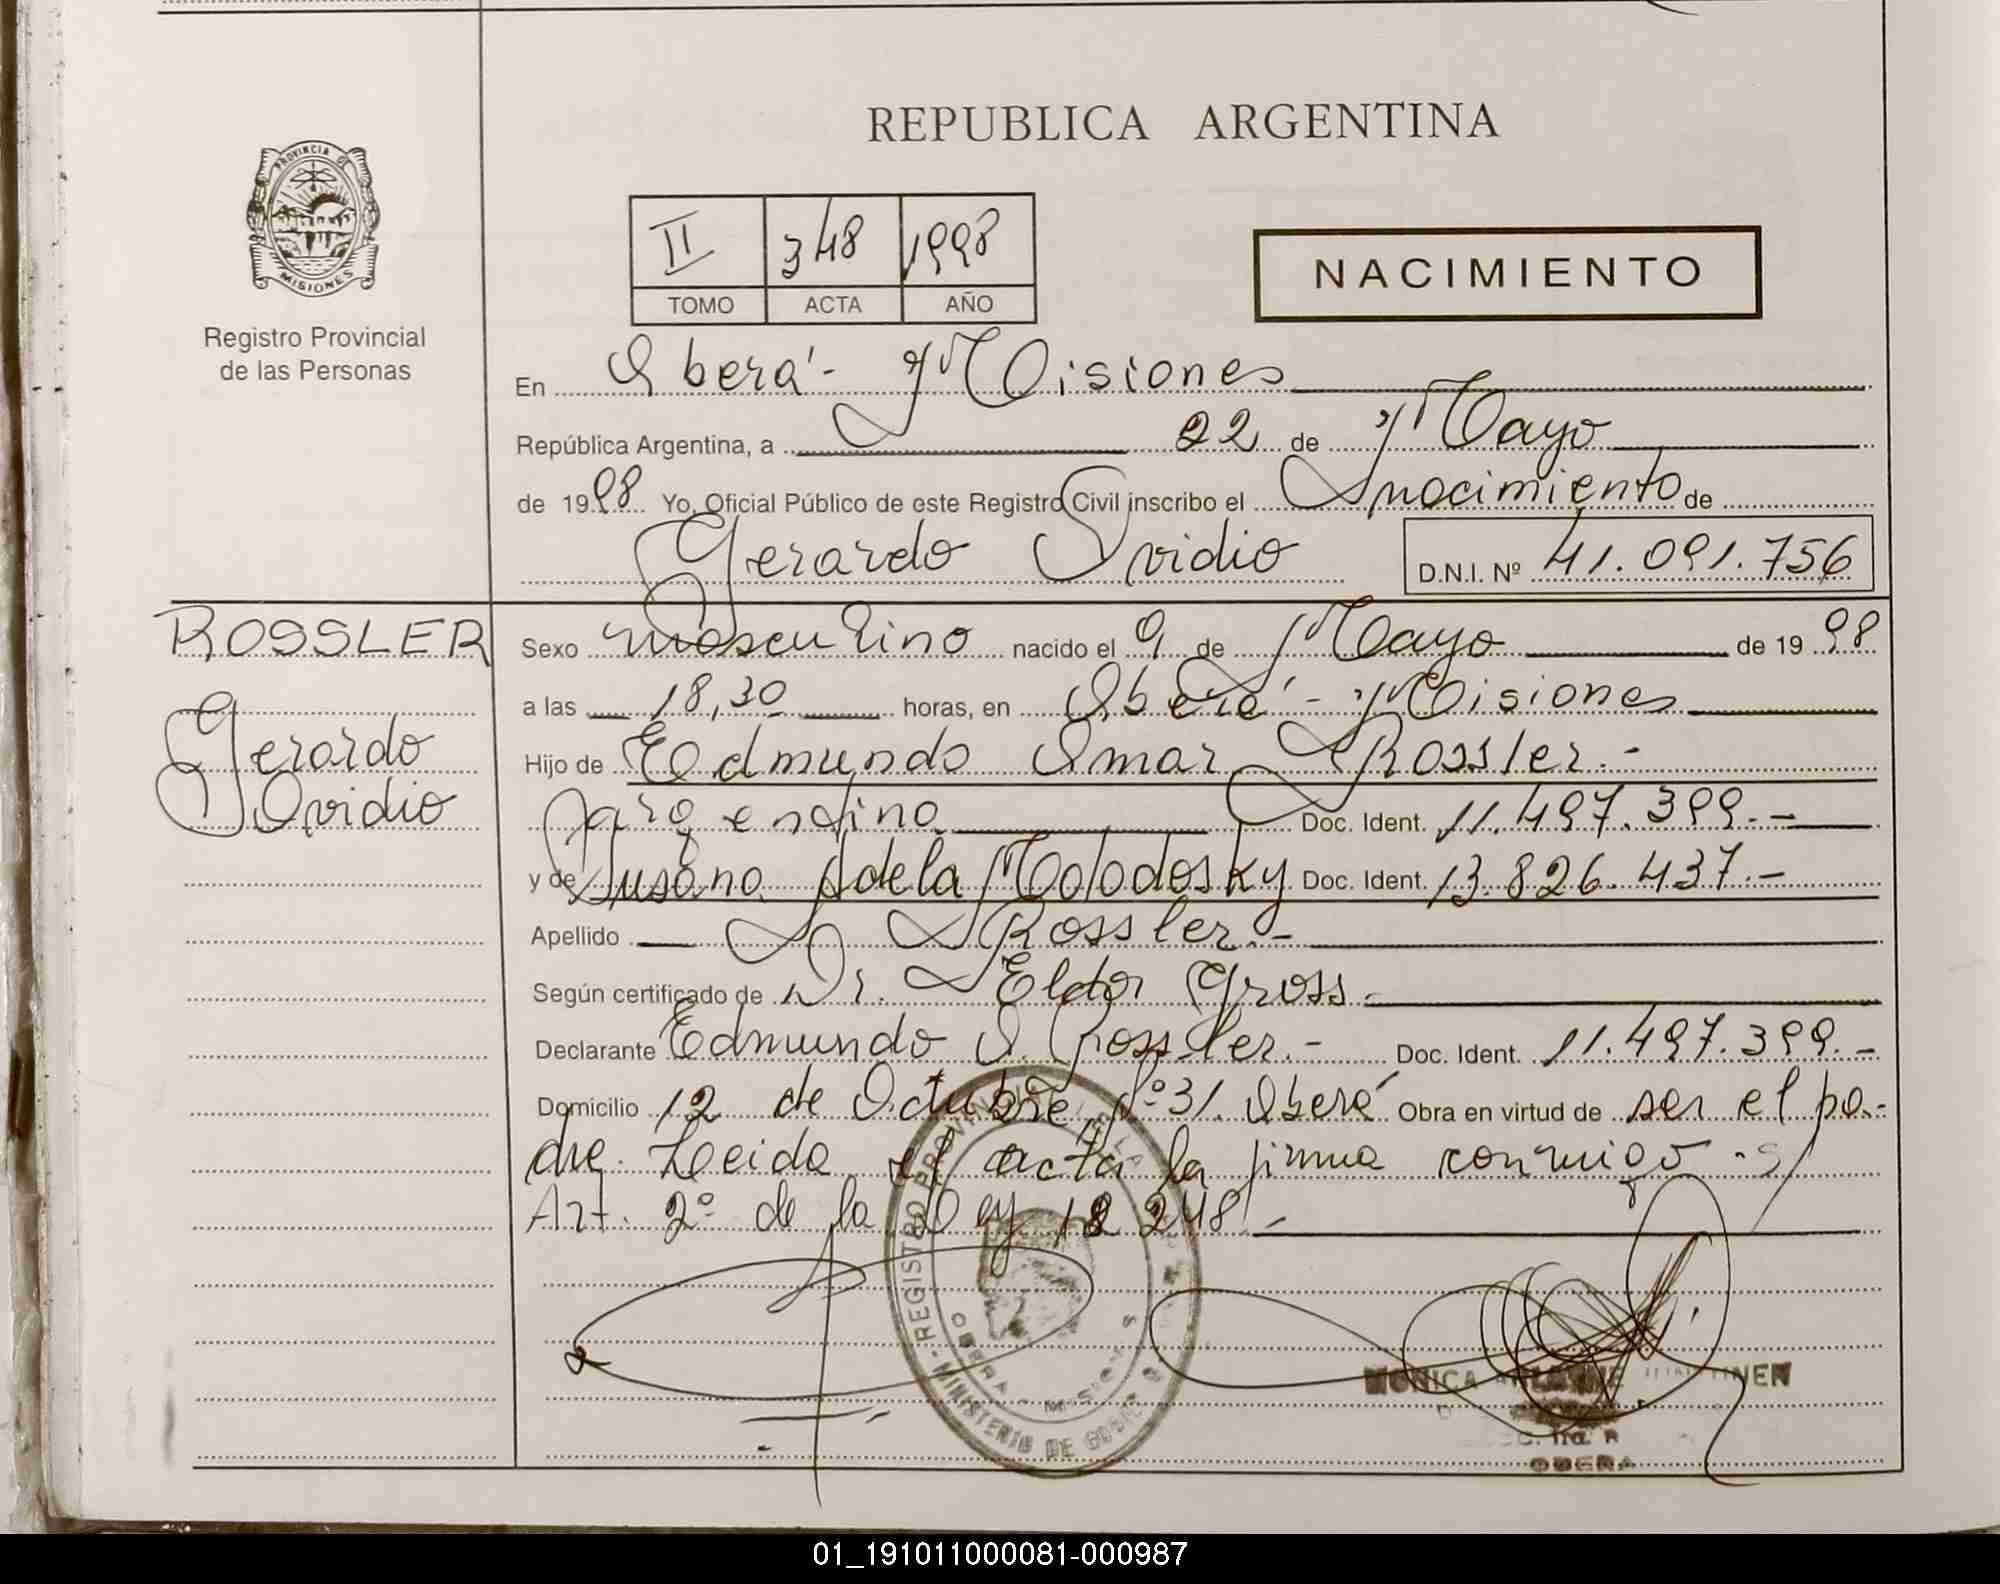 REPUBLICA ARGENTINA
PROVINCIA DE
MISIONES
Registro Provincial
de las Personas
II 348 1998
TOMO ACTA AÑO
NACIMIENTO
En Oberá - Misiones
República Argentina, a 22 de Mayo
de 1998 Yo, Oficial Público de este Registro Civil inscribo el nacimiento de
Gerardo Ovidio D.N.I. Nº 41.091.756
ROSSLER
Gerardo
Ovidio
Sexo masculino nacido el 9 de Mayo de 1998
a las 18,30 horas, en Oberá - Misiones
Hijo de Edmundo Omar Rossler.-
argentino Doc. Ident. 11.497.399.-
y de Susana Adela Molodosky Doc. Ident. 13.826.437.-
Apellido Rossler.-
Según certificado de Dr. Eldor Gross.-
Declarante Edmundo O. Rossler.- Doc. Ident. 11.497.399.-
Domicilio 12 de Octubre Nº 31. Oberá Obra en virtud de ser el pa-
dre. Leida el acta la firma conmigo - s/
Art. 2º de la Ley 18248.-
REGISTRO PROVINCIAL DE LAS
MINISTERIO DE
OBERA - MISIONES
MONICA
OBERA
01_191011000081-000987